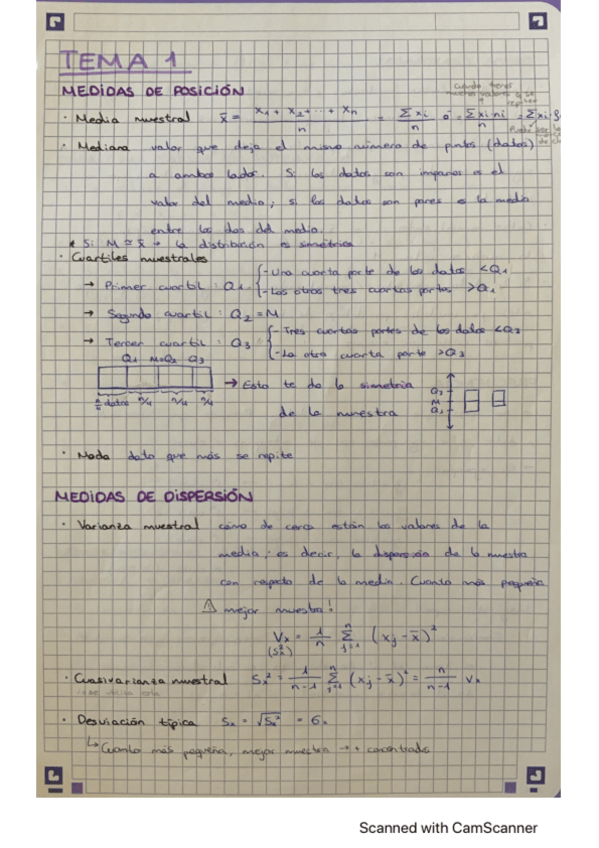 TEMA 1
MEDIDAS DE POSICIÓN
cuando tienes
muchos valores q se
repiten
· Media muestral x̄ = x₁ + x₂ + ··· + xₙ / n = Σ xi / n ó Σ xi ni / n = Σ xi
· Mediana valor que deja el mismo número de puntos (datos)
a ambos lados. Si los datos son impares es el
valor del medio; si los datos son pares es la media
entre los dos del medio.
* Si M ≈ x̄ → la distribución es simétrica
· Cuartiles muestrales
→ Primer cuartil: Q₁ { - Una cuarta parte de los datos < Q₁
- Las otras tres cuartas partes > Q₁
→ Segundo cuartil: Q₂ = M
→ Tercer cuartil: Q₃ { - Tres cuartas partes de los datos < Q₃
- La otra cuarta parte > Q₃
Q₁ M=Q₂ Q₃
→ Esto te da la simetría
de la muestra
n/4 datos n/4 n/4 n/4
Q₃
M
Q₁
· Moda dato que más se repite
MEDIDAS DE DISPERSIÓN
· Varianza muestral cómo de cerca están los valores de la
media; es decir, la dispersión de la muestra
con respecto de la media. Cuanto más pequeña
⚠ mejor muestra!
Vx = 1/n Σ j=1 n (xj - x̄)²
(S²x)
· Cuasivarianza muestral Sx² = 1/n-1 Σ j=1 n (xj - x̄)² = n/n-1 Vx
· Desviación típica Sx = √Sx² = σx
↳ Cuanto más pequeña, mejor muestra → + concentrado
Scanned with CamScanner